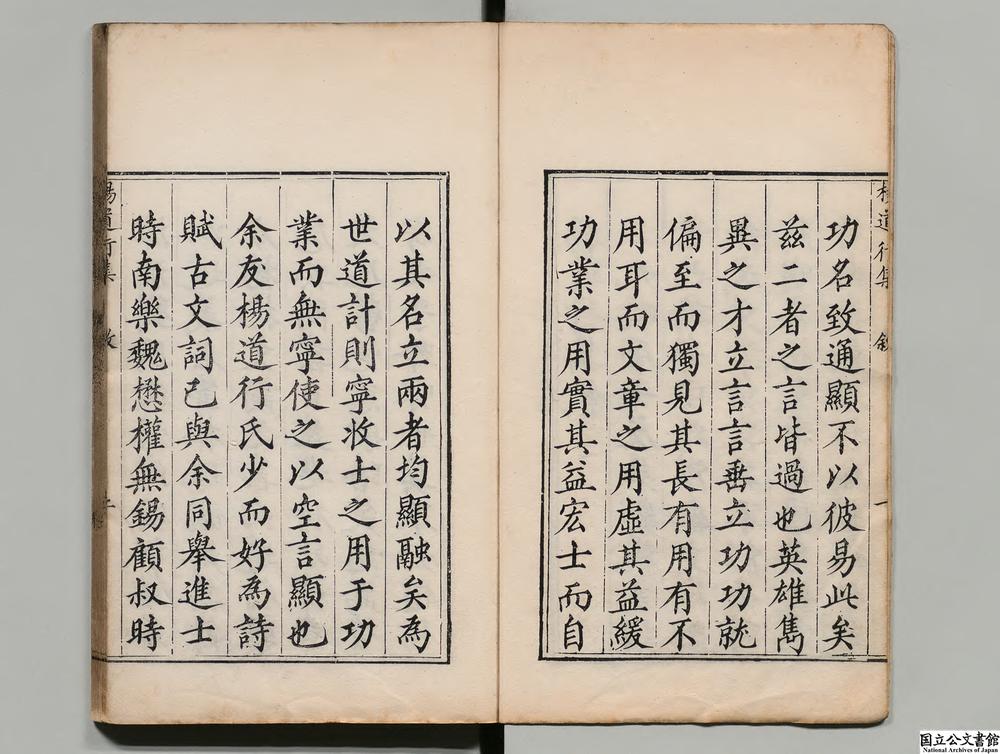 楊道行集 敘 一
功名致通顯不以彼易此矣
茲二者之言皆過也英雄雋
異之才立言言垂立功功就
偏至而獨見其長有用有不
用耳而文章之用虛其益緩
功業之用實其益宏士而自
以其名立兩者均顯融矣為
世道計則寧收士之用于功
業而無寧使之以空言顯也
余友楊道行氏少而好為詩
賦古文詞已與余同舉進士
時南樂魏懋權無錫顧叔時
楊道行集 敘
国立公文書館
National Archives of Japan